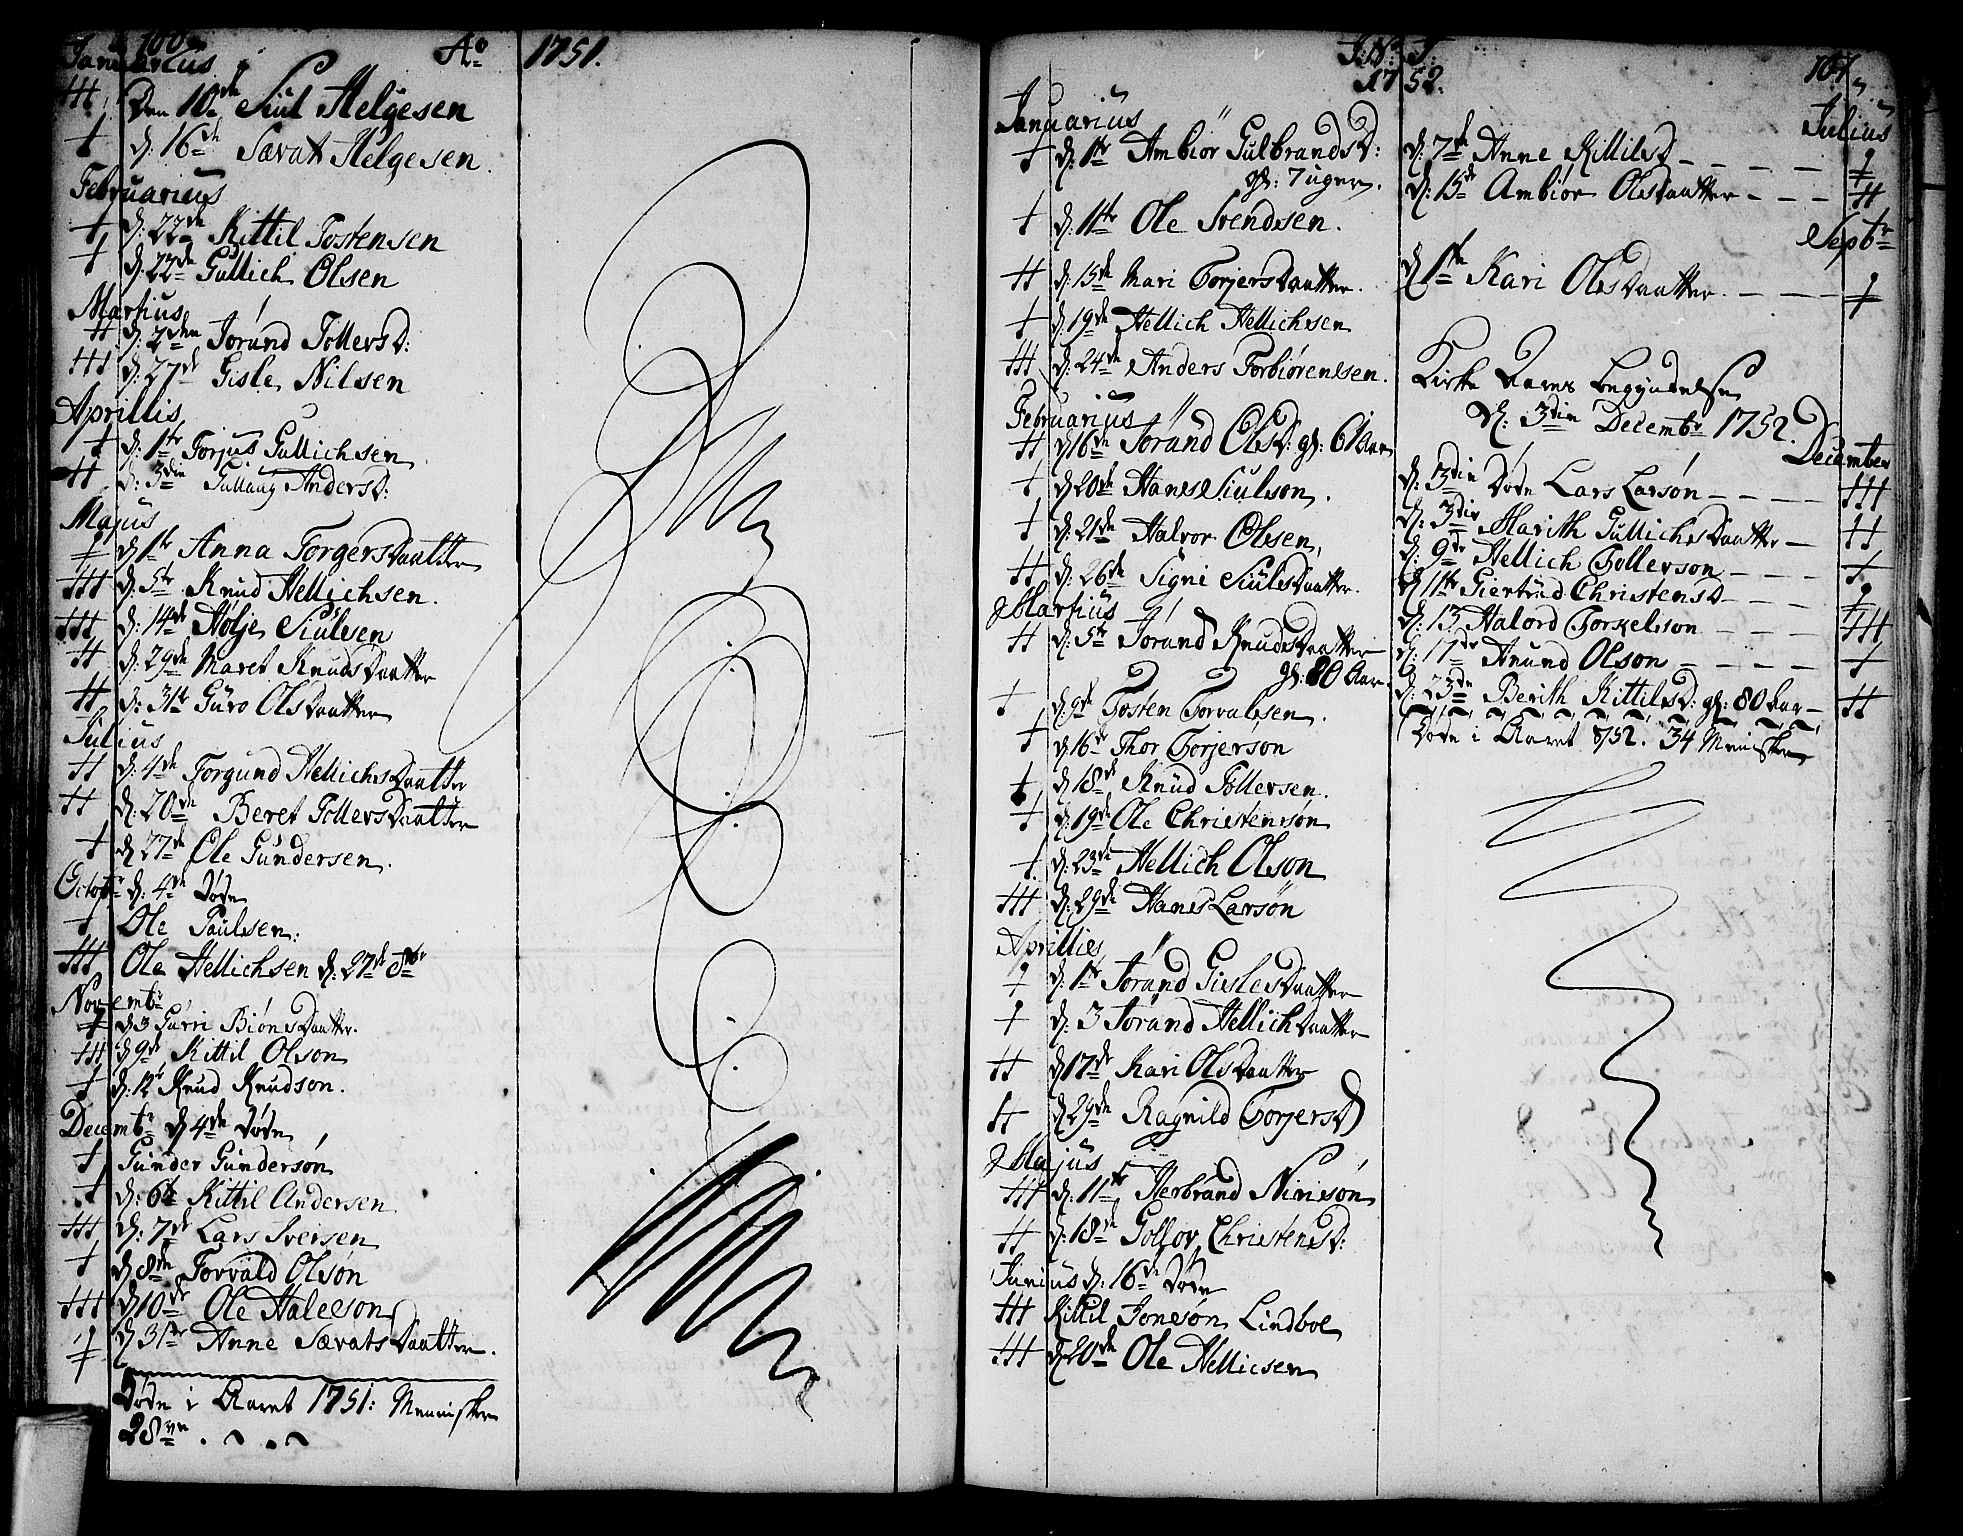 100
Januarius Ao 1751.
Den 10de Siul Helgesen
d. 16de Sævat Helgesen.
Februarius
d: 22de Kittil Tostensen
d. 22de Gullich Olsen
Martius
d. 2den Jørund TollersD:
d: 27de Gisle Nilsen
Aprillis
d: 1te Torjus Gullichsen
d: 3die Gullaug AndersD:
Majus
d 1te Anna TorgersDaatter
d: 5te Knud Hellichsen.
d: 14de Holje Siulsen
d: 29de Maret KnudsDaatter
d: 31te Guro OlsDaatter
Julius
d: 4de Torgund HellichsDaatter
d: 20de Beret TollersDaatter
d 27de Ole Gundersen.
Octobr d: 4de Døde
Ole Paulsen:
Ole Hellichsen d. 27de 8br
Novembr
d 3 Gurri BiønsDaatter.
d 9de Kittil Olson
d: 12te Knud Knudson.
Decembr d 4de Døde
Gunder Gundersøn
d: 6te Kittil Andersen
d: 7de Lars Sversen
d 8de Torvald Olsøn
d 10de Ole Haleeson
d 31te Anne SævatsDaatter.
Døde i Aaret 1751: Mennisker
28ve
J: N: J:
1752.
Januarius
d: 1te Ambiør GulbrandsD:
gl: 7 uger.
d: 11te Ole Svendsen.
d: 15de Mari TorjersDaatter.
d: 19de Hellich Hellichsen
d: 24de Anders Torbiørensen.
Februarius
d 16de Jorand OlsD: gl: 61 Aar
d 20de Hans Siulson.
d: 21de Halvor Olsen,
d: 26de Signi SiulsDaatter.
Martius
d: 5te Jorand KnudsDaatter
gl: 80 Aar.
d: 9de Tosten Torvalsen.
d 16de Thor Torjerson
d 18de Knud Tollersen.
d: 19de Ole Christensøn
d: 23de Hellich Olson
d: 29de Hans Larsøn
Aprillies
d: 1te Jorand GislesDaatter
d: 3 Jorand HellichDaatter
d 17de Kari OlsDaatter
d 29de Ragnild TorjersD
Majus
d: 11te Herbrand Nirisøn
d: 18de Golfov ChristensD:
Junius d: 16de Døde
Kittil Jonsøn Lindboe
d 20de Ole Hellicsen
101
Julius
d. 7de Anne KittilsD
d: 15de Ambiør OlsDaatter
Septr
d 1te Kari OlsDaatter.
Kirke Aarets begyndelse
d: 3die Decembr 1752.
December
d: 3die Døde Lars Larsøn
d: 3die Marith GullichsDaatter
d: 9de Hellich Tollerson
d 11te Giertrud ChristensD
d: 13 Halord Torkelson
d: 17de Anund Olson
d: 23de Berith KittilsD: gl: 80 Aar
Døde i Aaret 1752. 34 Mennisker